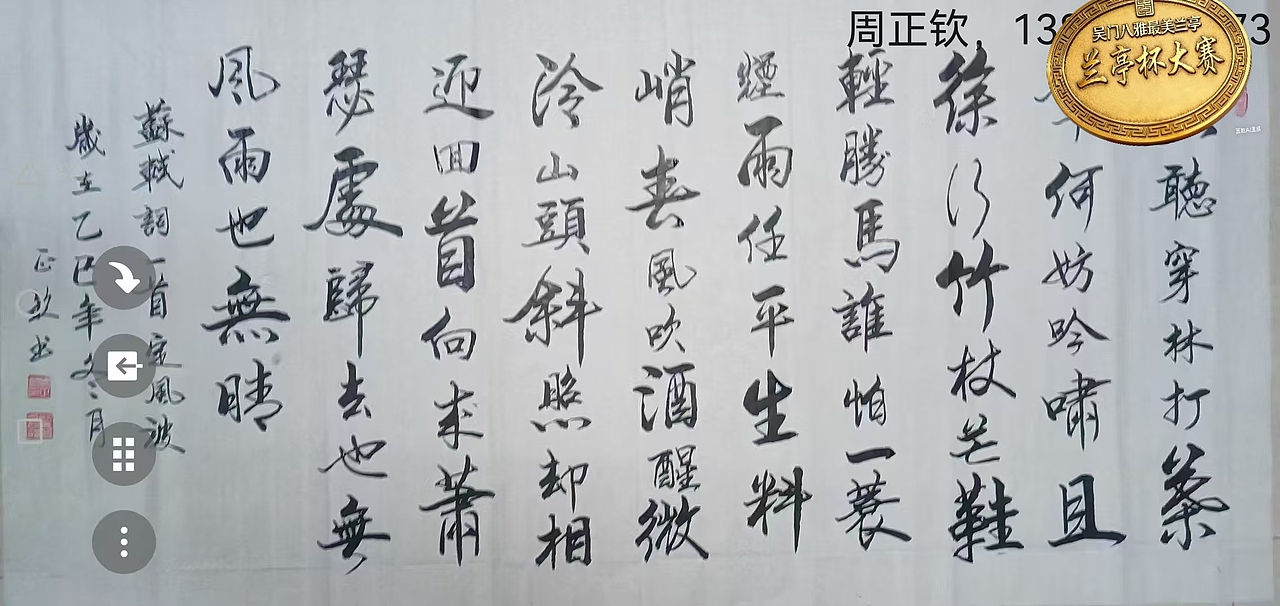 周正钦，13
73
吴门八雅最美兰亭
兰亭杯大赛
聽穿林打葉
何妨吟嘯且
徐行竹杖芒鞋
輕勝馬誰怕一蓑
煙雨任平生料
峭春風吹酒醒微
冷山頭斜照却相
迎回首向来蕭
瑟處歸去也無
風雨也無晴
蘇軾詞一首定風波
歲在乙巳年冬月
正欽书